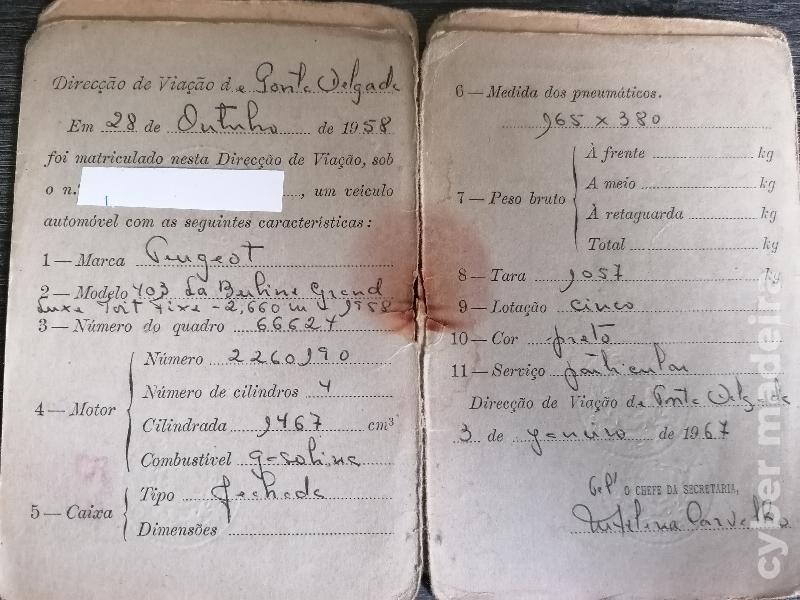 Direcção de Viação de Ponta Delgada
Em 28 de Outubro de 1958
foi matriculado nesta Direcção de Viação, sob
o n., um veículo
automóvel com as seguintes características:
1—Marca Peugeot
2—Modelo 403 Berline Grand
Luxe Toit Fixe - 2,660 m 1958
3—Número do quadro 66627
4—Motor
Número 2260190
Número de cilindros 4
Cilindrada 1467 cm³
Combustível gasolina
5—Caixa
Tipo fechada
Dimensões
6—Medida dos pneumáticos.
165 x 380
7—Peso bruto
À frente kg
A meio kg
À retaguarda kg
Total kg
8—Tara 1057 kg
9—Lotação cinco
10—Cor preto
11—Serviço particular
Direcção de Viação de Ponta Delgada
3 de janeiro de 1967
O CHEFE DA SECRETARIA,
Carvalho
cyber madeira